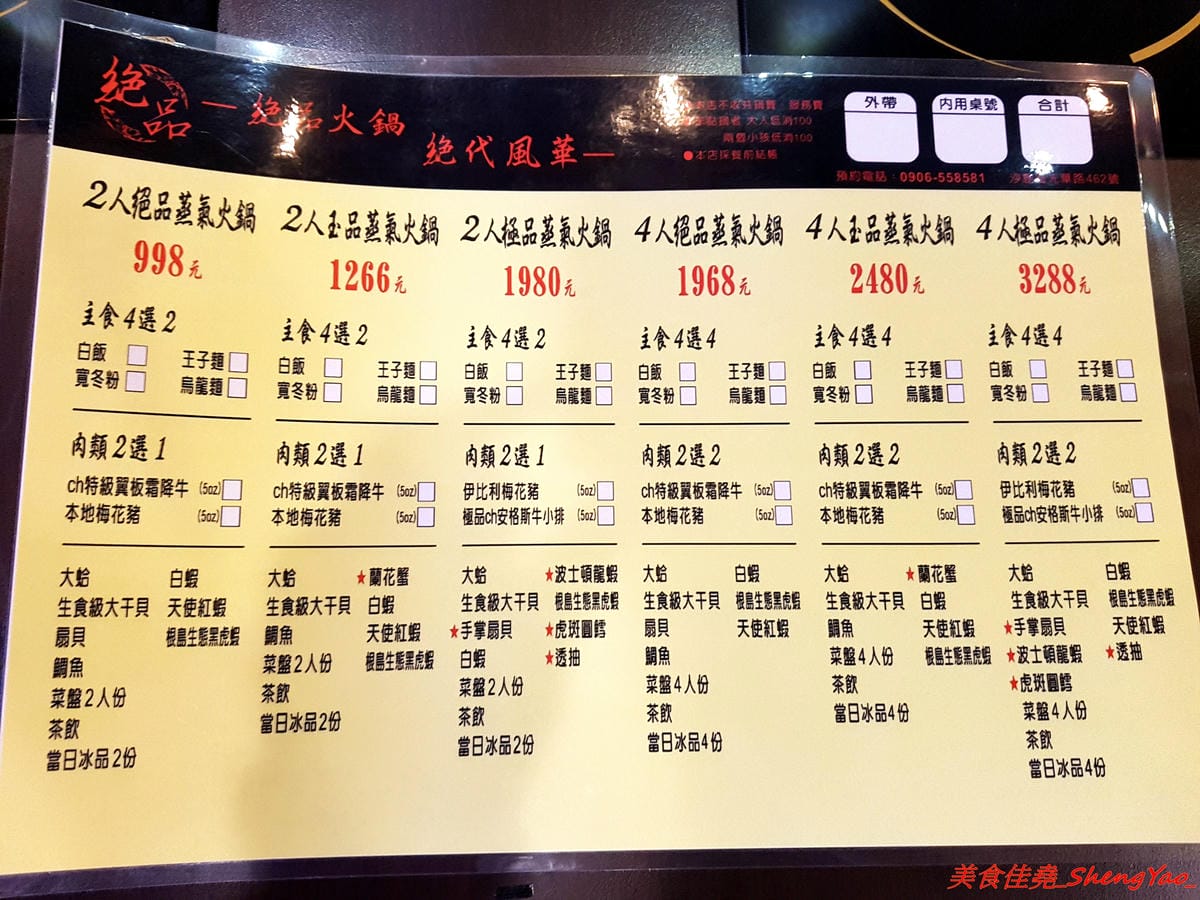 絕品
一 絕品火鍋
絕代風華一
本店不收井鍋費 服務費
點鍋者 大人低消100
兩個小孩低消100
●本店採餐前結帳
外帶 內用桌號 合計
預約電話：0906-558581 光華路462號
2人絕品蒸氣火鍋
998元
主食4選2
白飯 王子麵
寬冬粉 烏龍麵
肉類2選1
ch特級翼板霜降牛 (5oz)
本地梅花豬 (5oz)
大蛤 白蝦
生食級大干貝 天使紅蝦
扇貝 根島生態黑虎蝦
鯛魚
菜盤2人份
茶飲
當日冰品2份
2人玉品蒸氣火鍋
1266元
主食4選2
白飯 王子麵
寬冬粉 烏龍麵
肉類2選1
ch特級翼板霜降牛 (5oz)
本地梅花豬 (5oz)
大蛤 ★蘭花蟹
生食級大干貝 白蝦
鯛魚 天使紅蝦
菜盤2人份 根島生態黑虎蝦
茶飲
當日冰品2份
2人極品蒸氣火鍋
1980元
主食4選2
白飯 王子麵
寬冬粉 烏龍麵
肉類2選1
伊比利梅花豬 (5oz)
極品ch安格斯牛小排 (5oz)
大蛤 ★波士頓龍蝦
生食級大干貝 根島生態黑虎蝦
★手掌扇貝 ★虎斑圓鱈
白蝦 ★透抽
菜盤2人份
茶飲
當日冰品2份
4人絕品蒸氣火鍋
1968元
主食4選4
白飯 王子麵
寬冬粉 烏龍麵
肉類2選2
ch特級翼板霜降牛 (5oz)
本地梅花豬 (5oz)
大蛤 白蝦
生食級大干貝 根島生態黑虎蝦
扇貝 天使紅蝦
鯛魚
菜盤4人份
茶飲
當日冰品4份
4人玉品蒸氣火鍋
2480元
主食4選4
白飯 王子麵
寬冬粉 烏龍麵
肉類2選2
ch特級翼板霜降牛 (5oz)
本地梅花豬 (5oz)
大蛤 ★蘭花蟹
生食級大干貝 白蝦
鯛魚 天使紅蝦
菜盤4人份 根島生態黑虎蝦
茶飲
當日冰品4份
4人極品蒸氣火鍋
3288元
主食4選4
白飯 王子麵
寬冬粉 烏龍麵
肉類2選2
伊比利梅花豬 (5oz)
極品ch安格斯牛小排 (5oz)
大蛤 白蝦
生食級大干貝 根島生態黑虎蝦
★手掌扇貝 天使紅蝦
★波士頓龍蝦 ★透抽
★虎斑圓鱈
菜盤4人份
茶飲
當日冰品4份
美食佳堯_ShengYao_